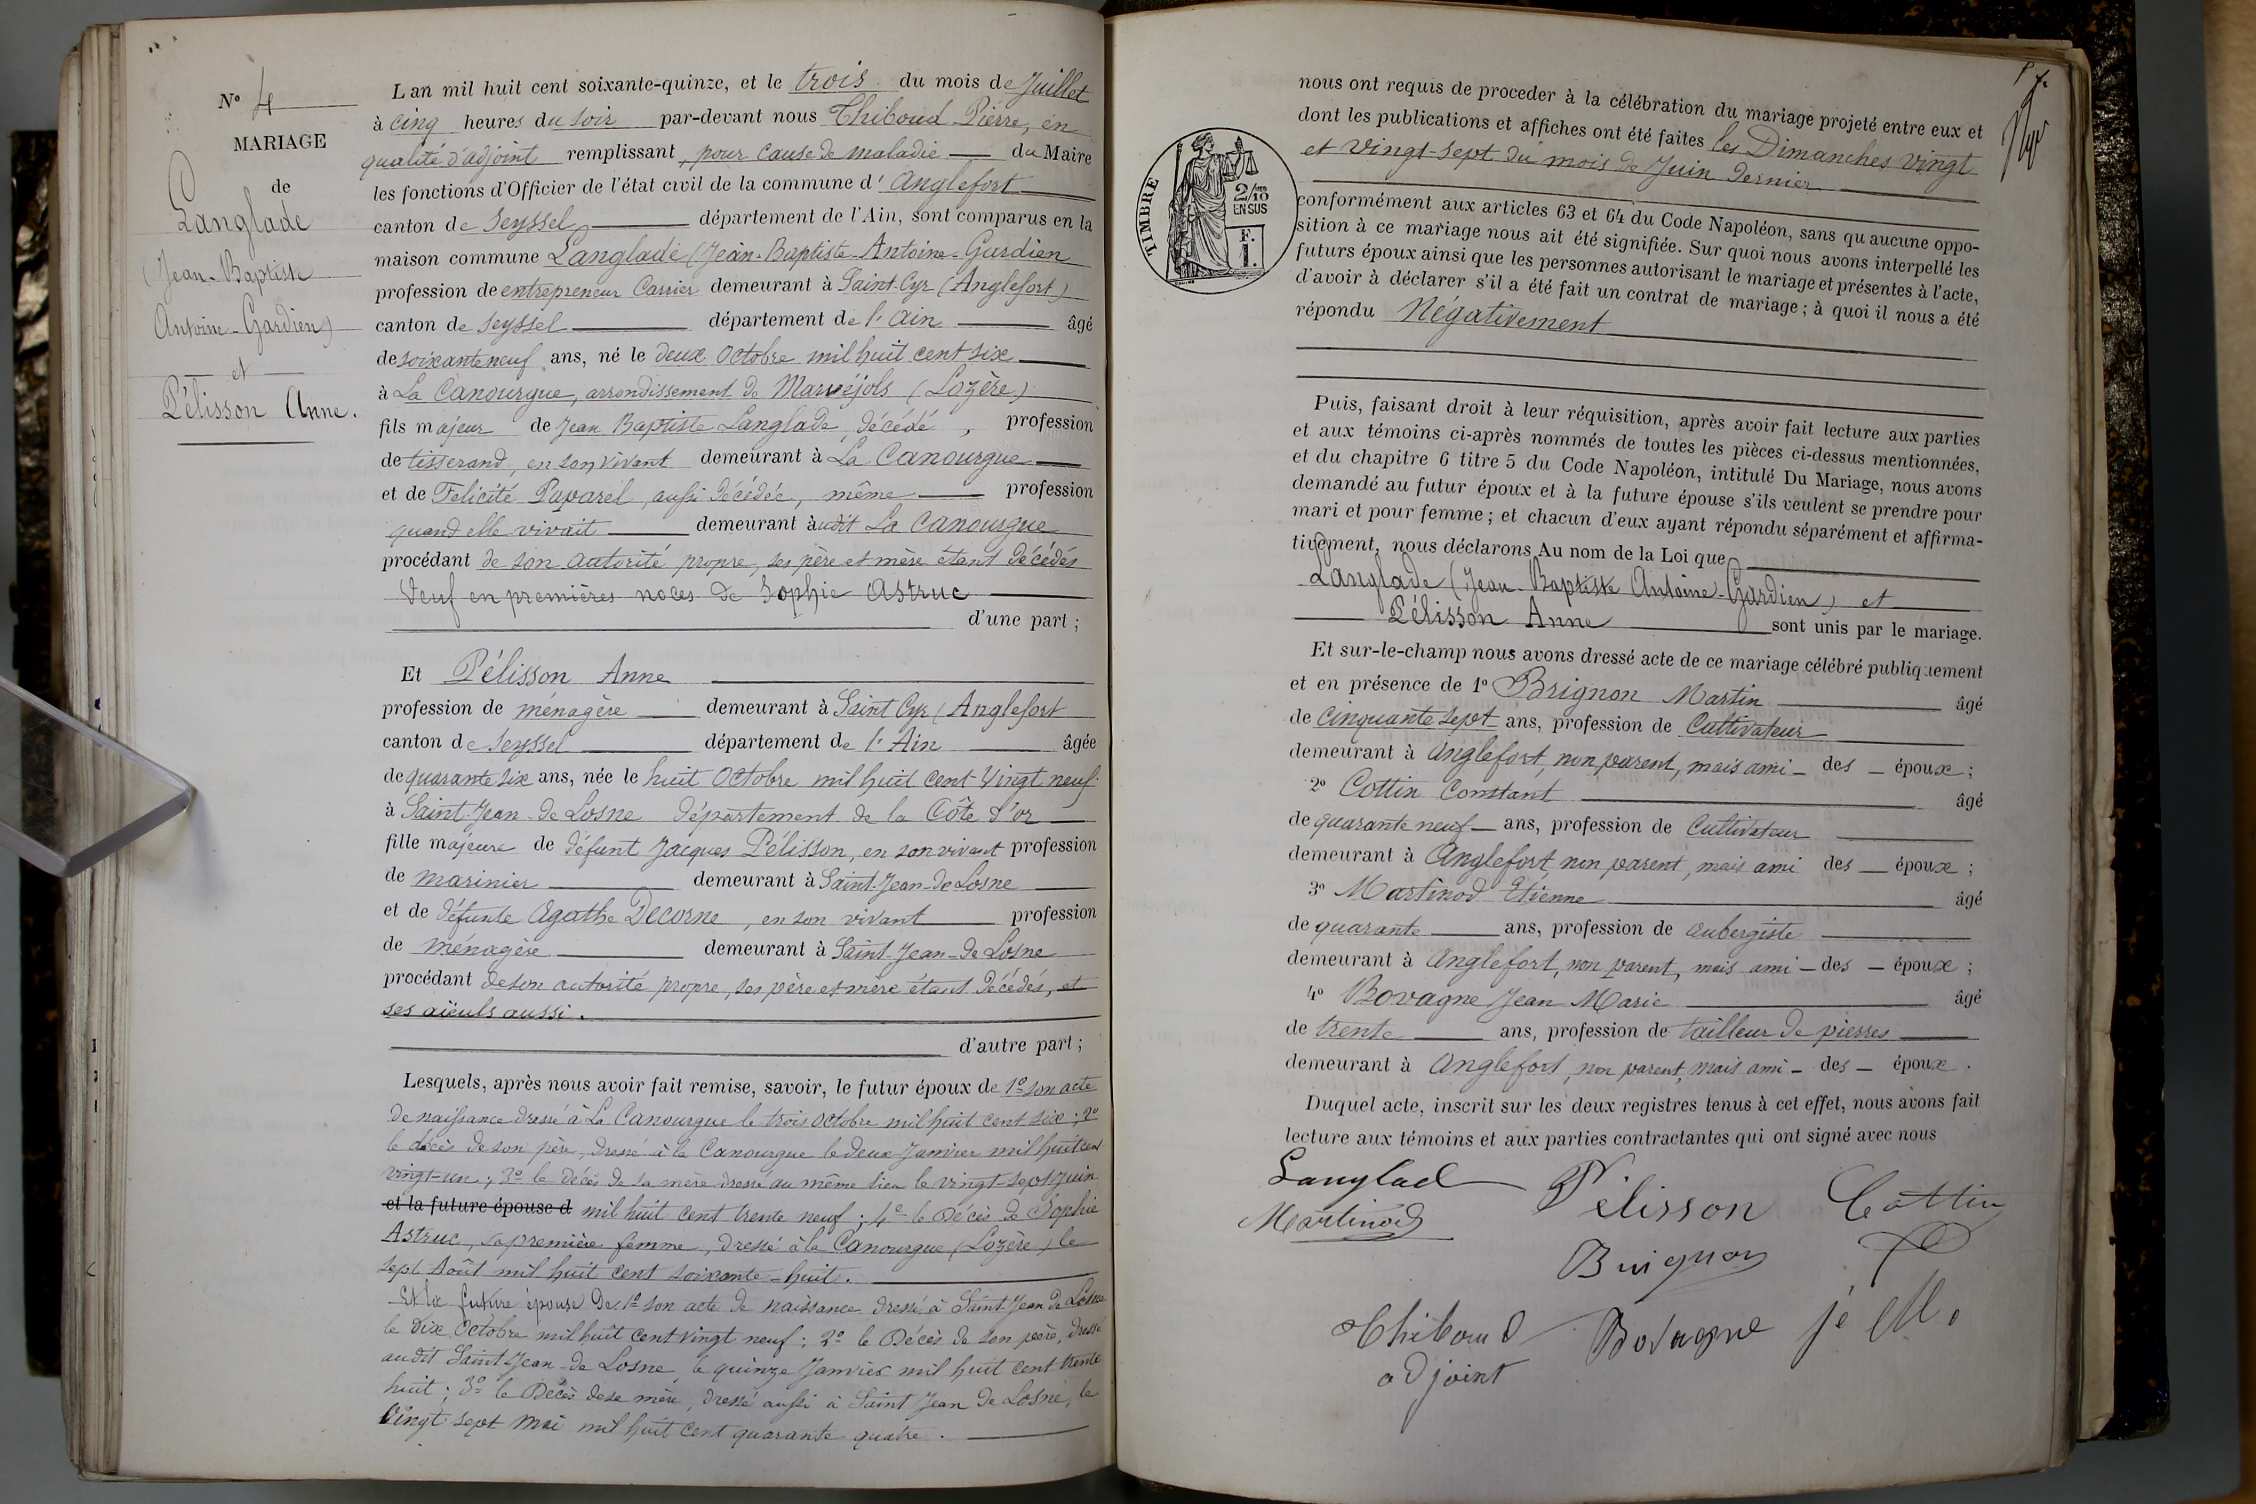 N° 4
MARIAGE
de
Langlade
(Jean-Baptiste
Antoine-Gardien)
et
Pélisson Anne.
L an mil huit cent soixante-quinze, et le trois du mois de Juillet
à cinq heures du soir par-devant nous Thiboud Pierre, en
qualité d'adjoint remplissant, pour cause de maladie du Maire
les fonctions d'Officier de l'état civil de la commune d'Anglefort
canton de Seyssel département de l'Ain, sont comparus en la
maison commune Langlade (Jean-Baptiste-Antoine-Gardien
profession de entrepreneur Carrier demeurant à Saint-Cyr (Anglefort)
canton de Seyssel département de l'Ain âgé
de soixante neuf ans, né le deux Octobre mil huit cent six
à La Canourgue, arrondissement de Marvejols (Lozère)
fils majeur de Jean Baptiste Langlade, décédé, profession
de tisserand, en son vivant demeurant à La Canourgue
et de Félicité Paparel, aussi décédée, même profession
quand elle vivait demeurant audit La Canourgue
procédant de son autorité propre, ses père et mère étant décédés
Veuf en premières noces de Sophie Astruc
d'une part ;
Et Pélisson Anne
profession de ménagère demeurant à Saint Cyr (Anglefort
canton de Seyssel département de l'Ain âgée
de quarante six ans, née le huit Octobre mil huit cent Vingt neuf
à Saint-Jean-de Losne département de la Côte d'or
fille majeure de défunt Jacques Pélisson, en son vivant profession
de marinier demeurant à Saint-Jean-de Losne
et de défunte Agathe Decorne, en son vivant profession
de ménagère demeurant à Saint-Jean-de Losne
procédant de son autorité propre, ses père et mère étant décédés, et
ses aïeuls aussi.
d'autre part ;
Lesquels, après nous avoir fait remise, savoir, le futur époux de 1° son acte
de naissance dressé à La Canourgue le trois Octobre mil huit cent six ; 2°
le décès de son père, dressé à la Canourgue le deux Janvier mil huit cent
vingt-un ; 3° le décès de sa mère dressé au même lieu le vingt-sept Juin
et la future épouse d mil huit cent trente neuf ; 4° le décès de Sophie
Astruc, sa première femme, dressé à la Canourgue (Lozère) le
sept Août mil huit cent soixante-huit.
Et la future épouse de 1° son acte de naissance dressé à Saint Jean de Losne
le dix Octobre mil huit cent vingt neuf ; 2° le Décès de son père, dressé
audit Saint Jean-de Losne, le quinze Janvier mil huit cent trente
huit ; 3° le Décès de sa mère, dressé aussi à Saint Jean de Losne, le
Vingt sept mai mil huit cent quarante quatre.
TIMBRE
2/10
EN SUS
F.
1.
nous ont requis de proceder à la célébration du mariage projeté entre eux et
dont les publications et affiches ont été faites les Dimanches vingt
et vingt-sept du mois de Juin dernier
conformément aux articles 63 et 64 du Code Napoléon, sans qu aucune oppo-
sition à ce mariage nous ait été signifiée. Sur quoi nous avons interpellé les
futurs époux ainsi que les personnes autorisant le mariage et présentes à l'acte,
d'avoir à déclarer s'il a été fait un contrat de mariage ; à quoi il nous a été
répondu Négativement
Puis, faisant droit à leur réquisition, après avoir fait lecture aux parties
et aux témoins ci-après nommés de toutes les pièces ci-dessus mentionnées,
et du chapitre 6 titre 5 du Code Napoléon, intitulé Du Mariage, nous avons
demandé au futur époux et à la future épouse s'ils veulent se prendre pour
mari et pour femme ; et chacun d'eux ayant répondu séparément et affirma-
tivement, nous déclarons Au nom de la Loi que
Langlade (Jean-Baptiste Antoine-Gardien) et
Pélisson Anne sont unis par le mariage.
Et sur-le-champ nous avons dressé acte de ce mariage célébré publiquement
et en présence de 1° Brignon Martin âgé
de cinquante sept ans, profession de Cultivateur
demeurant à Anglefort, non parent, mais ami des époux ;
2° Cottin Constant âgé
de quarante neuf ans, profession de Cultivateur
demeurant à Anglefort, non parent, mais ami des époux ;
3° Martinod Etienne âgé
de quarante ans, profession de aubergiste
demeurant à Anglefort, non parent, mais ami des époux ;
4° Bovagne Jean Marie âgé
de trente ans, profession de tailleur de pierres
demeurant à Anglefort, non parent, mais ami des époux.
Duquel acte, inscrit sur les deux registres tenus à cet effet, nous avons fait
lecture aux témoins et aux parties contractantes qui ont signé avec nous
Langlad Pélisson Cottin
Martinod
Brignon
Thiboud Bovagne je M.
adjoint